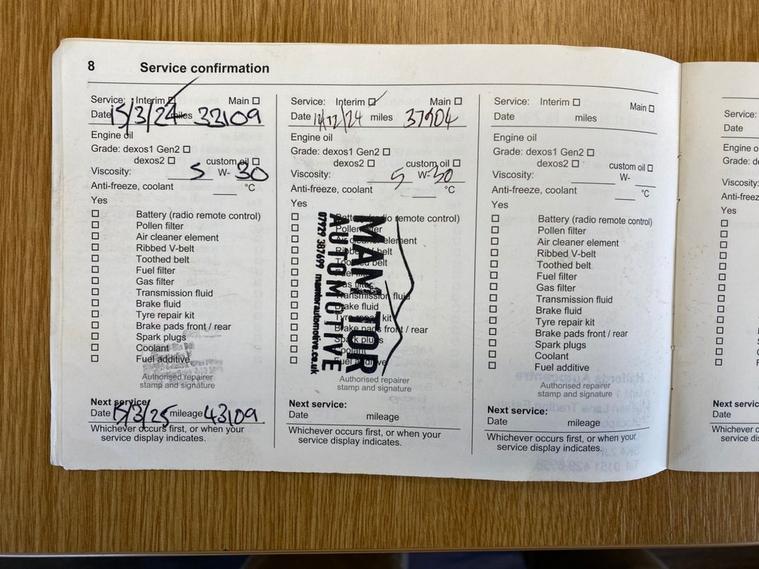 8 Service confirmation
Service: Interim ☐ Main ☐
Date 15/3/24 miles 33109
Engine oil
Grade: dexos1 Gen2 ☐
dexos2 ☐ custom oil ☐
Viscosity: 5 W- 30
Anti-freeze, coolant °C
Yes
☐ Battery (radio remote control)
☐ Pollen filter
☐ Air cleaner element
☐ Ribbed V-belt
☐ Toothed belt
☐ Fuel filter
☐ Gas filter
☐ Transmission fluid
☐ Brake fluid
☐ Tyre repair kit
☐ Brake pads front / rear
☐ Spark plugs
☐ Coolant
☐ Fuel additive
Authorised repairer
stamp and signature
Next service:
Date 15/3/25 mileage 43109
Whichever occurs first, or when your
service display indicates.
Service: Interim ☐ Main ☐
Date /12/24 miles 37904
Engine oil
Grade: dexos1 Gen2 ☐
dexos2 ☐ custom oil ☐
Viscosity: 5 W- 30
Anti-freeze, coolant °C
Yes
☐ Battery (radio remote control)
☐ Pollen filter
☐ Air cleaner element
☐ Ribbed V-belt
☐ Toothed belt
☐
☐ Gas filter
☐ Transmission fluid
☐ Brake fluid
☐ Tyre repair kit
☐ Brake pads front / rear
☐ Spark plugs
☐ Coolant
☐ Fuel additive
MAM TOR
AUTOMOTIVE
07929 387699 mamtorautomotive.co.uk
Authorised repairer
stamp and signature
Next service:
Date mileage
Whichever occurs first, or when your
service display indicates.
Service: Interim ☐ Main ☐
Date miles
Engine oil
Grade: dexos1 Gen2 ☐
dexos2 ☐ custom oil ☐
Viscosity: W-
Anti-freeze, coolant °C
Yes
☐ Battery (radio remote control)
☐ Pollen filter
☐ Air cleaner element
☐ Ribbed V-belt
☐ Toothed belt
☐ Fuel filter
☐ Gas filter
☐ Transmission fluid
☐ Brake fluid
☐ Tyre repair kit
☐ Brake pads front / rear
☐ Spark plugs
☐ Coolant
☐ Fuel additive
Authorised repairer
stamp and signature
Next service:
Date mileage
Whichever occurs first, or when your
service display indicates.
Service:
Date
Engine o
Grade: d
Viscosity:
Anti-freez
Yes
Next servic
Date
Whichever o
service di